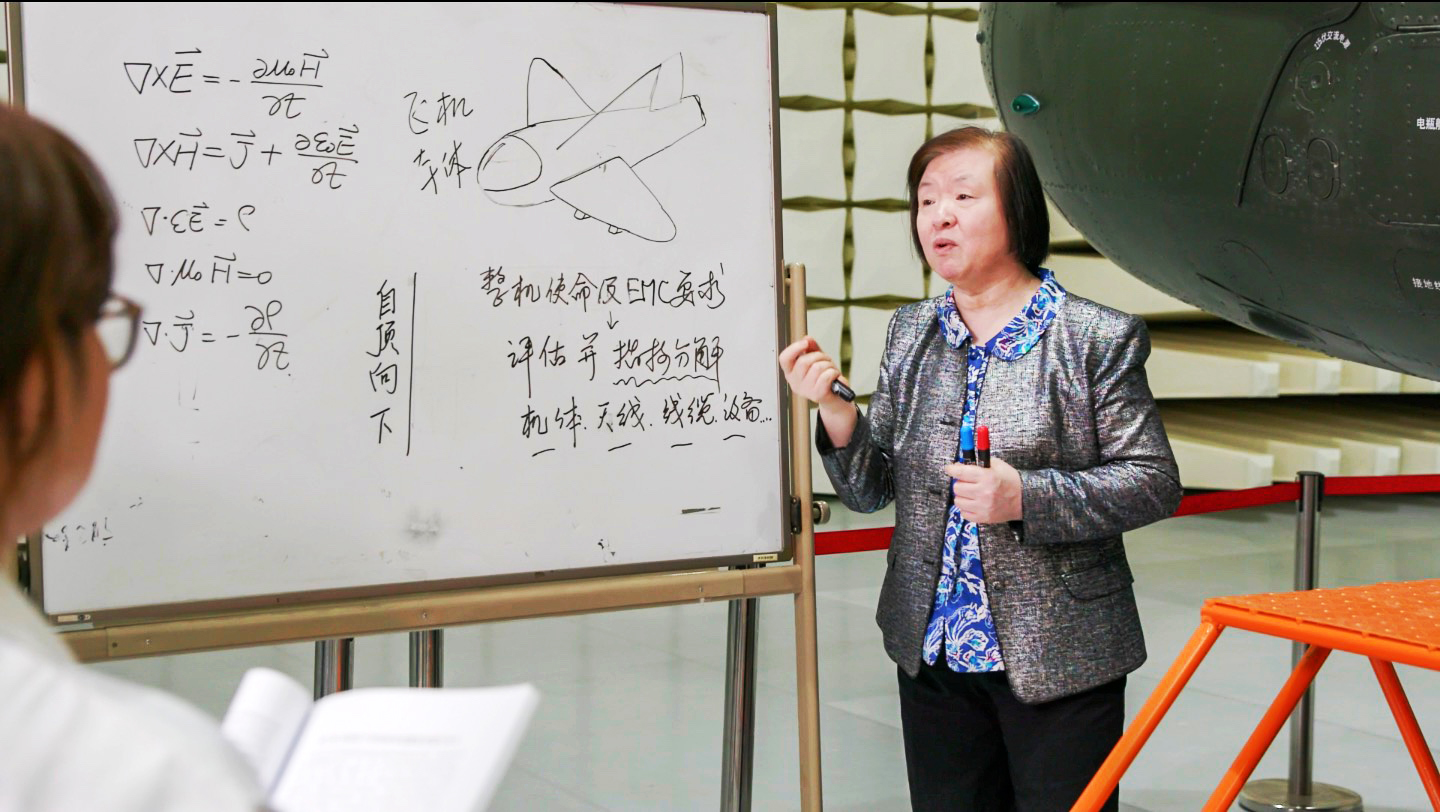 ∇×E⃗ = - ∂μ₀H⃗/∂t
∇×H⃗ = J⃗ + ∂ε₀E⃗/∂t
∇·εE⃗ = ρ
∇·μ₀H⃗ = 0
∇·J⃗ = - ∂ρ/∂t
飞机
自顶向下
整机使命及EMC要求
↓
评估并指标分解
机体.天线.线缆.设备...
电瓶
接地